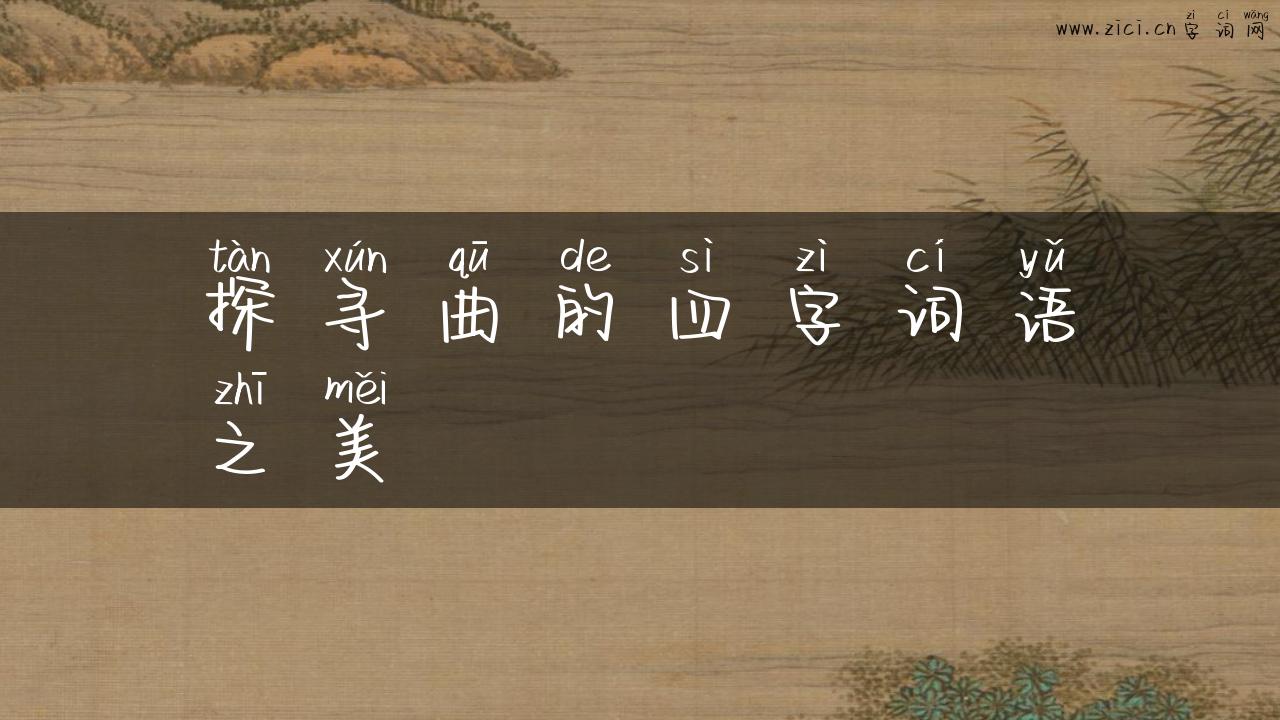 zì cí wǎng
www.zici.cn字词网
tàn xún qū de sì zì cí yǔ
探寻曲的四字词语
zhī měi
之美